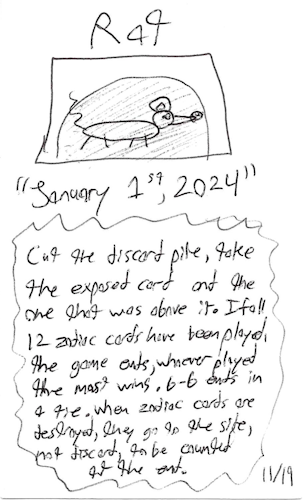 Rat
"January 1st, 2024"
Cut the discard pile, take
the exposed card and the
one that was above it. If all
12 zodiac cards have been played,
the game ends, whoever played
the most wins. 6-6 ends in
a tie. when zodiac cards are
destroyed, they go to the side,
not discard, to be counted
at the end.
11/19